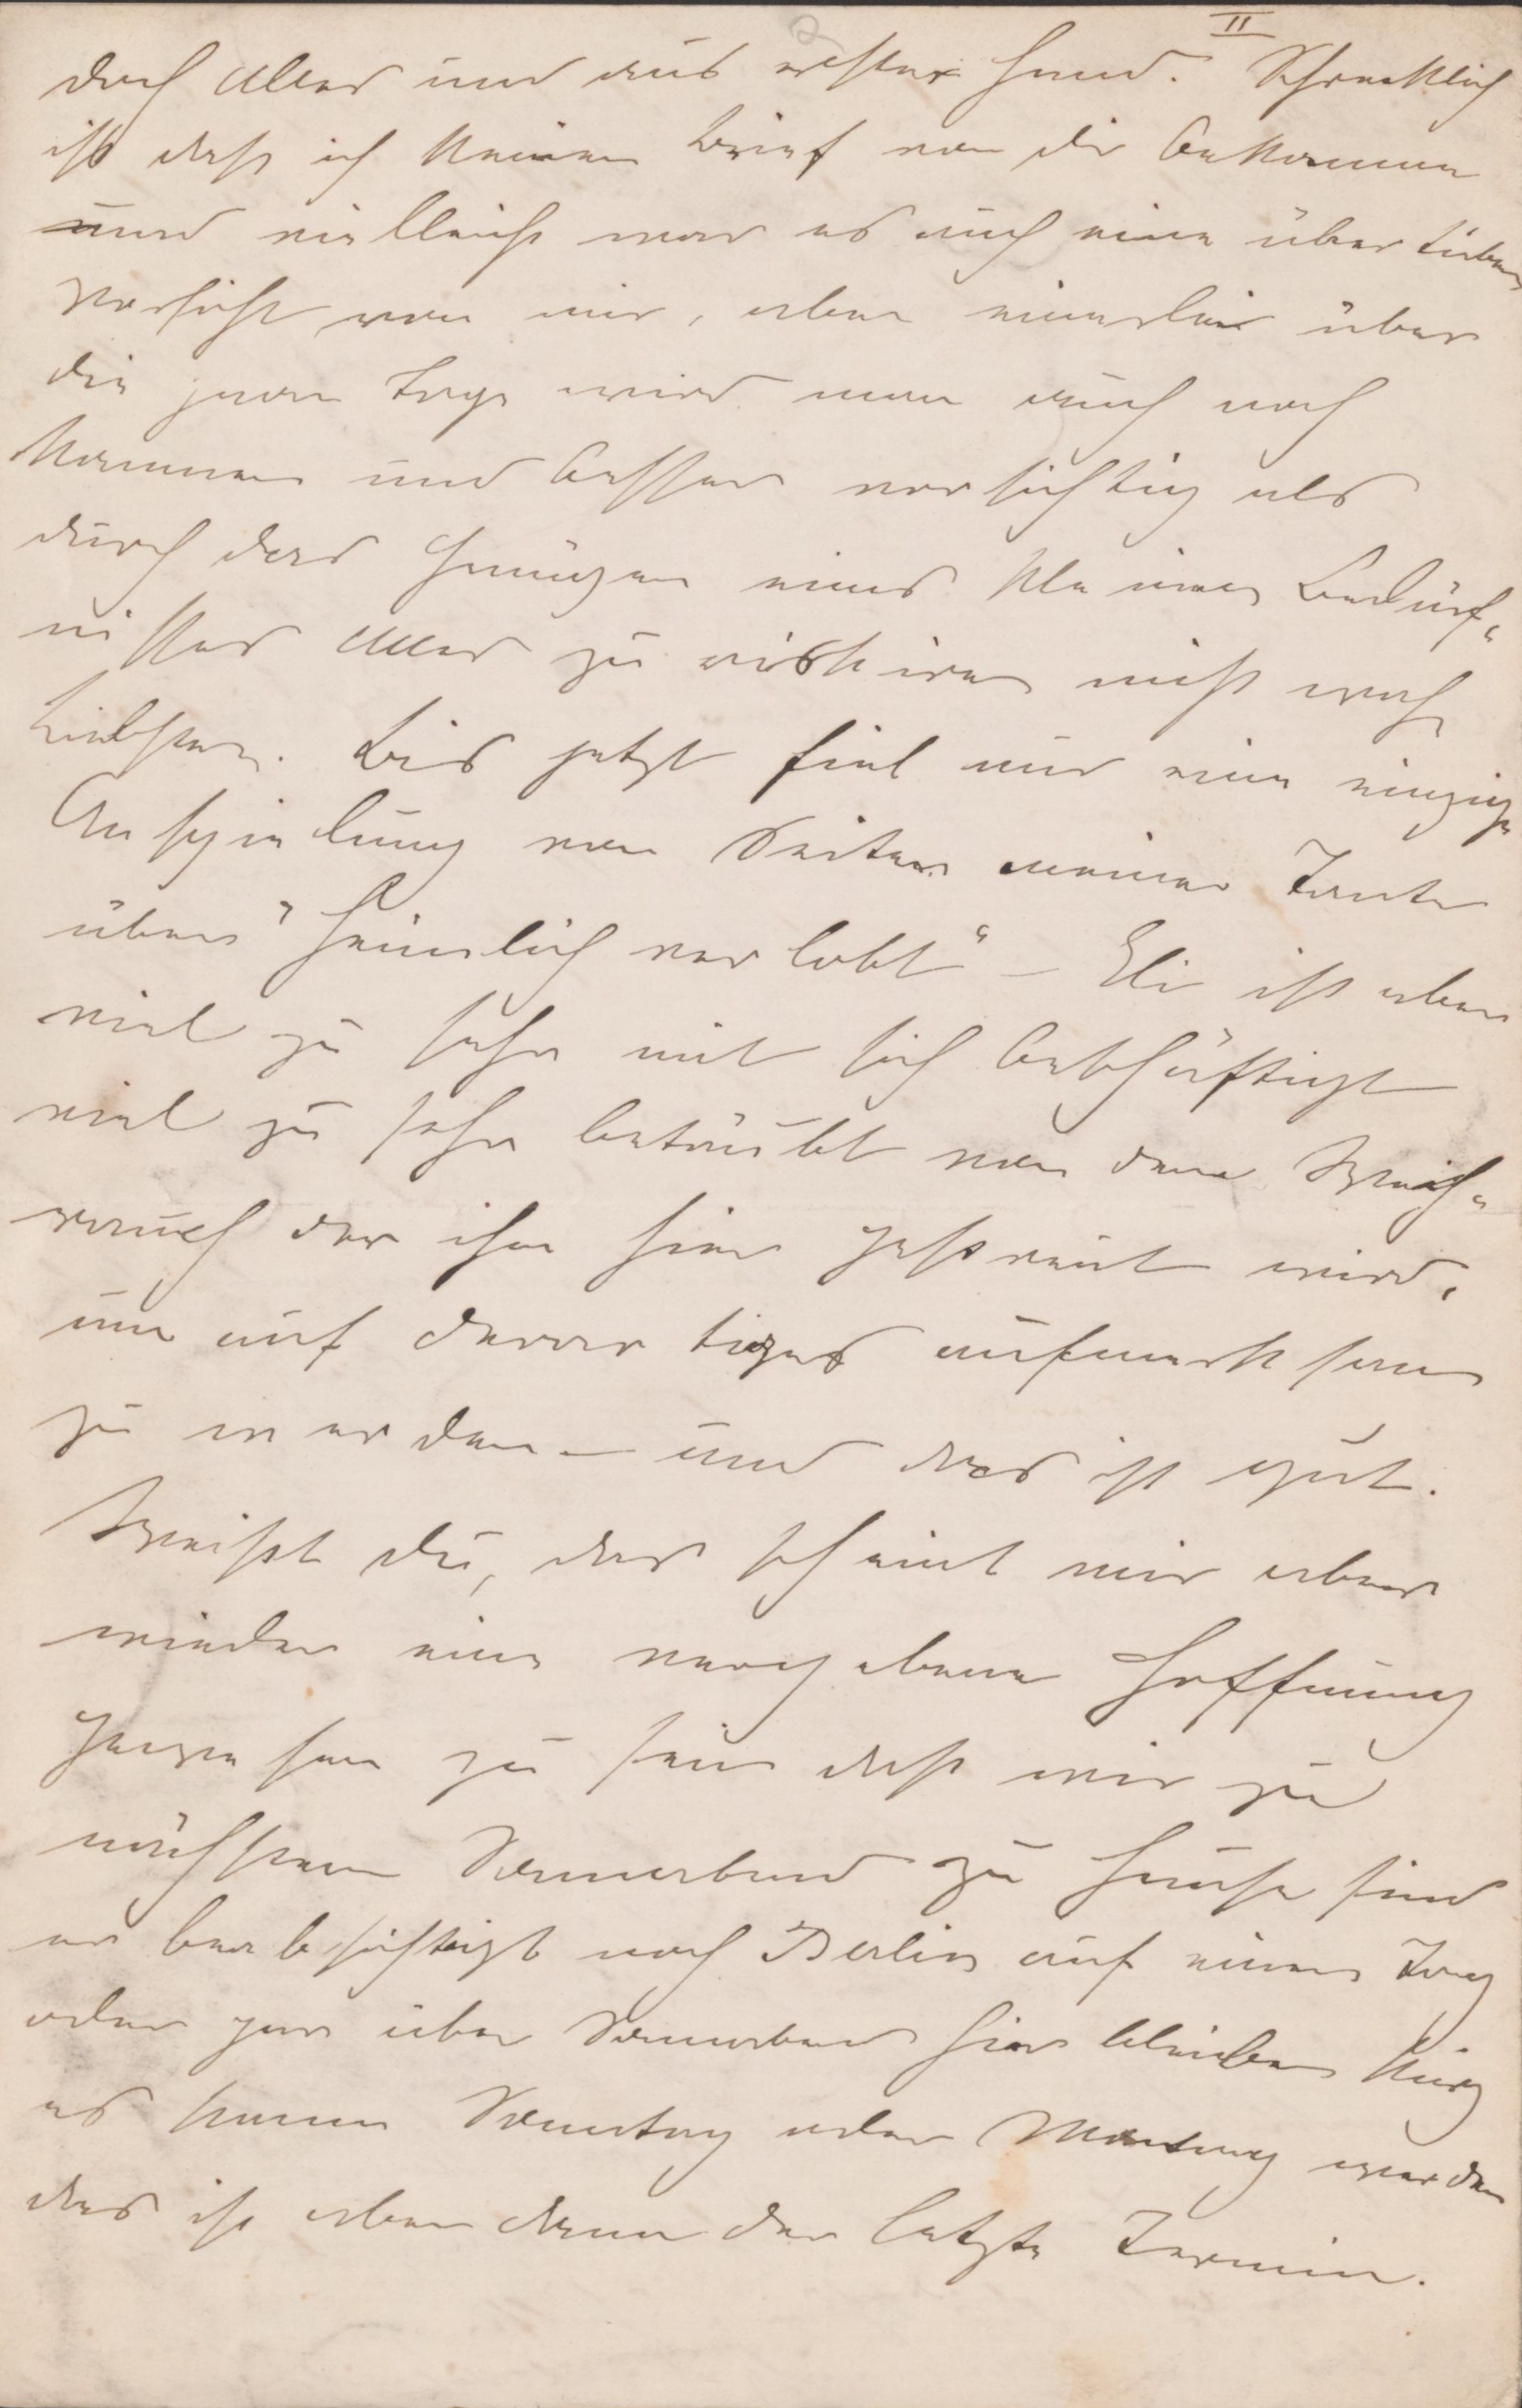 II
2
doch alles nur aus erster Hand. Schrecklich
ist daß ich keinen Brief von dir bekomme
und vielleicht war es auch eine übertriebene
Vorsicht von mir, aber einerlei über
die paar Tage wird man auch noch
kommen und besser vorsichtig als
durch das Genügen eines kleinen Bedürf-
nisses alles zu riskiren nicht wahr
Liebster. Bis jetzt fiel nur eine einzige
Anspielung von Seiten meiner Tante
über "heimlich verlobt" – Eli ist aber
viel zu sehr mit sich beschäftigt
viel zu sehr betäubt von dem Weih-
rauch der ihm hier gestreut wird,
um auf derartiges aufmerksam
zu werden – und das ist gut.
Weißt du, das scheint mir aber
wieder eine vergebene Hoffnung
gewesen zu sein daß wir zu
nächstem Sonnabend zu Hause sind
er beabsichtigt noch Berlin auf einen Tag
oder gar über Sonnabend hier bleiben kurz
es kann Sonntag oder Montag werden
das ist aber dann der letzte Termin.